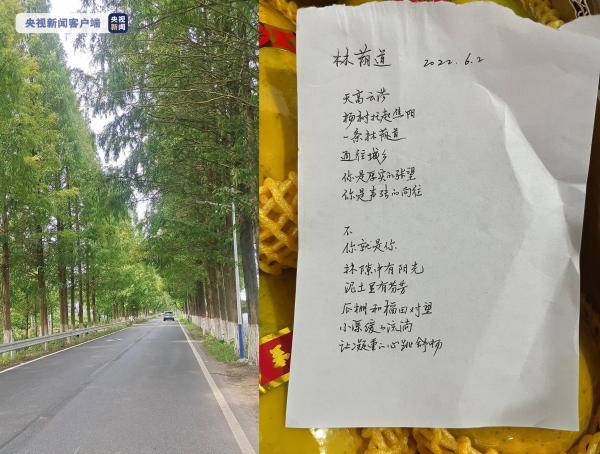 央视新闻客户端
新闻
林荫道 2022.6.2
天高云淡
杨树托起焦阳
一条林荫道
通往城乡
你是厚实的张望
你是的向往
不
你就是你
林隙中有阳光
泥土里有芬芳
瓜棚和稻田对望
小溪缓缓流淌
让凝重的心跳舒畅